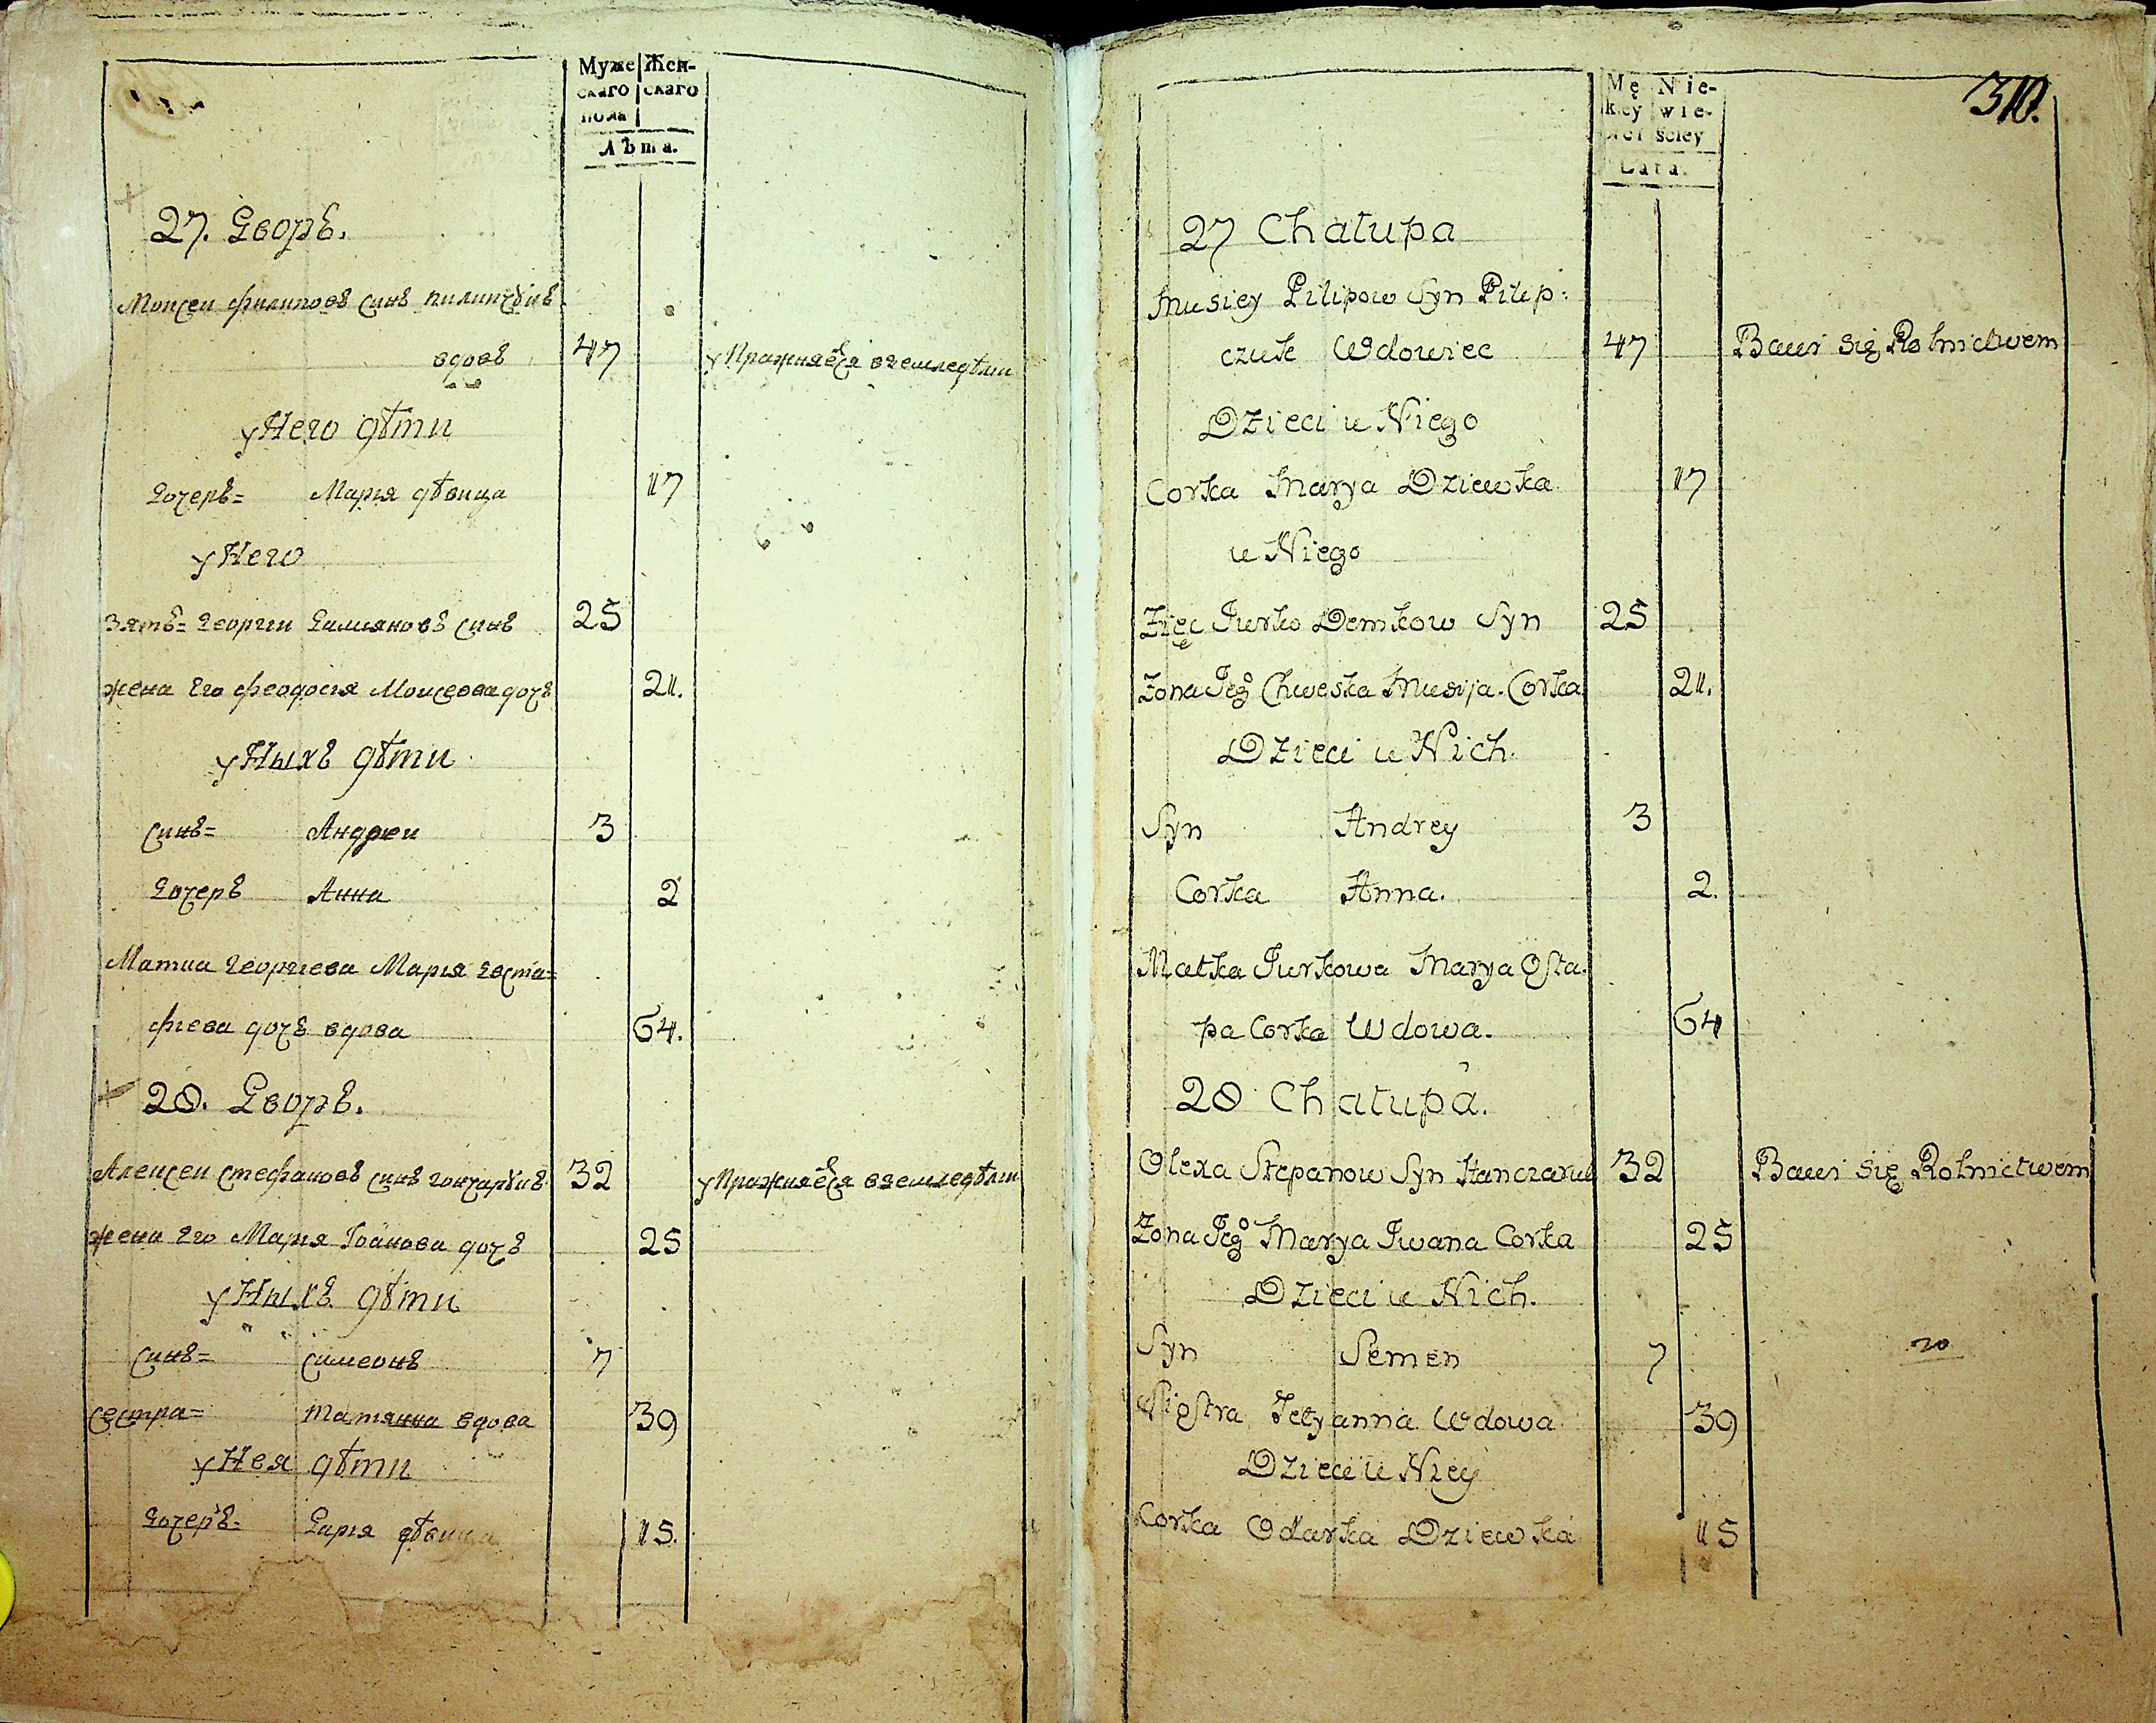 Муже Жен-
скаго скаго
пола
Лѣта.
27. Дворъ.
Моисеи Филиповъ синъ пилипчукъ
вдовъ 47 упражняется в земледѣлии
у Него дѣти
Дочеръ= Мария дѣвица 17
у Него
Зять= Георгии Дамияновъ синъ 25
жена Его Феодосия Моисеова дочъ 21.
у Ныхъ дѣти
синъ= Андреи 3
Дочеръ Анна 2
Матка Георгиева Мария Еста=
фиева дочъ вдова 64.
28. Дворъ.
Алексеи Стефановъ синъ гончарукъ 32 упражняется в земледѣлии
жена Его Мария Іоанова дочъ 25
у Ныхъ дѣти
синъ= симеонъ 7
сестра= татянна вдова 39
у Нея дѣти
Дочеръ= Дария дѣвица 15.
310.
Mę Nie-
kiey wie-
ściey
Lata.
27 Chałupa
Musiey Pilipow Syn Pilip:
czuk Wdowiec 47 Bawi się Rolnictwem
Dzieci u Niego
Corka Marya Dziewka 17
u Niego
Zięc Jurko Demkow Syn 25
Zona Jeg° Chweska Musija. Corka 21.
Dzieci u Nich.
Syn Andrey 3
Corka Anna. 2.
Matka Jurkowa Marya Osta.
pa Corka Wdowa. 64
28 Chałupa.
Olexa Stepanow Syn Hanczaruk 32 Bawi się Rolnictwem
Zona Jeg° Marya Iwana Corka 25
Dzieci u Nich.
Syn Semen 7
Siostra Tetyanna Wdowa 39
Dzieci u Niey
Corka Odarka Dziewka 15